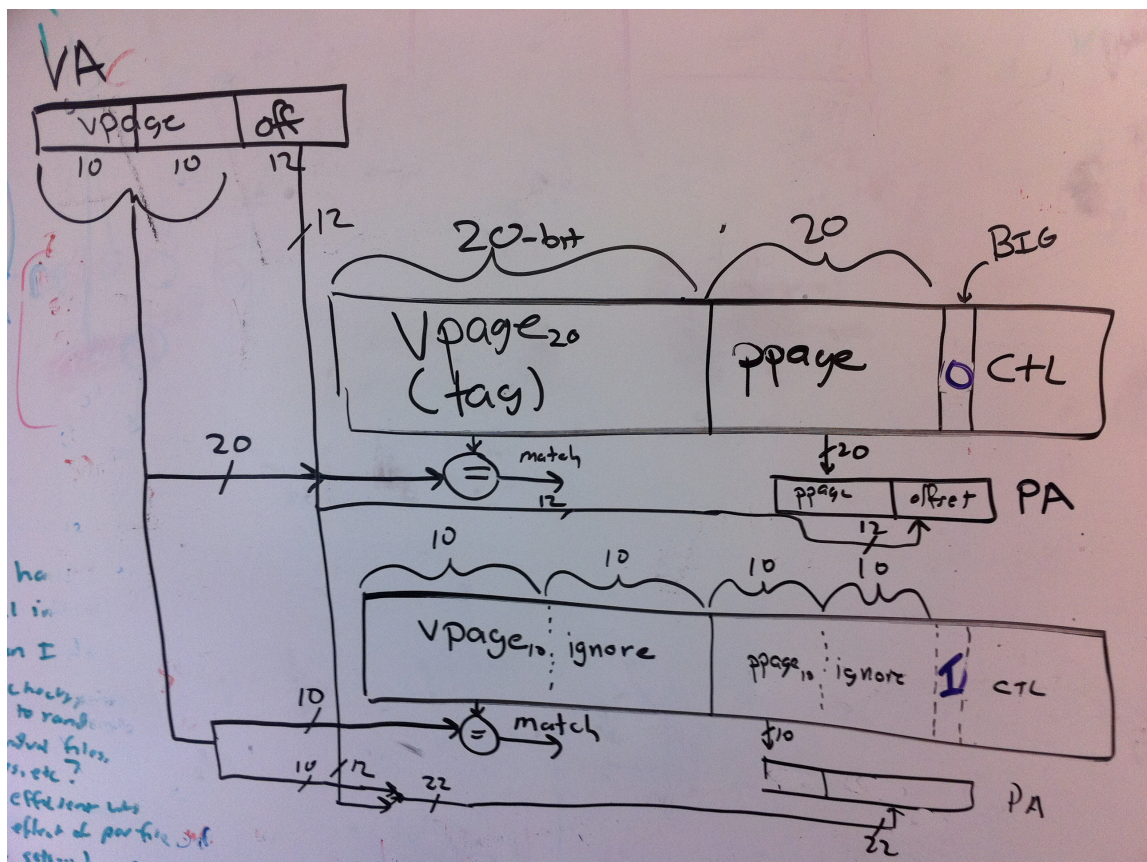 VA
vpage off
10 10 12
12
20-bit 20 BIG
Vpage20 ppage 0 CTL
(tag)
20 = match 20
12 ppage offset PA
12
10 10 10 10
Vpage10 ignore ppage10 ignore 1 CTL
10 = match 10
10 12 22 PA
22
ha
l in
n I
to rand
files,
s, etc?